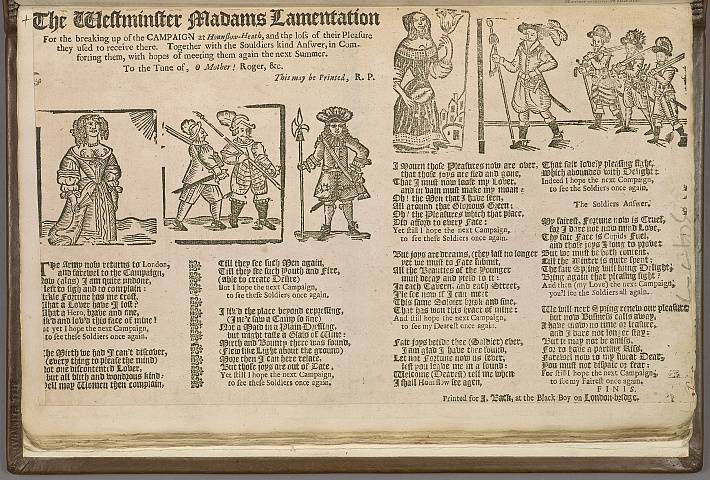 The Westminster Madams Lamentation
For the breaking up of the CAMPAIGN at Hounslow-Heath, and the loss of their Pleasure
they used to receive there. Together with the Souldiers kind Answer, in Com-
forting them, with hopes of meeting them again the next Summer.
To the Tune of, O Mother! Roger, &c.
This may be Printed, R. P.
The Army now returns to London,
and farewel to the Campaign,
now (alas) I am quite undone,
left to sigh and to complain:
ickle Fortune has me crost,
What a Lover have I lost?
What a Hero, brave and fine,
like and lov'd this face of mine!
at yet I hope the next Campaign,
to see these Soldiers once again.
he Mirth we had I can't discover,
(every thing to please the mind)
not one discontented Lover,
but all blith and wondrous kind:
Well may Women then complain,
Till they see such Men again,
Till they see such Youth and Fire,
(able to create Desire)
But I hope the next Campaign,
to see these Soldiers once again.
I lik'd the place beyond expressing,
(I ne'r saw a Camp so fine)
Not a Maid in a Plain Dressing,
but might taste a Glass of Wine:
Mirth and Bounty there was found,
(Flew like Light about the ground)
More then I can here relate,
But those joys are out of Date,
Yet still I hope the next Campaign,
to see these Soldiers once again.
I Mourn those Pleasures now are over,
that those joys are fled and gone,
That I must now loose my Lover,
and in vain must make my moan:
Oh! the Men that I have seen,
All around that Glorious Green:
Oh! the Pleasures which that place,
Did afford to every Face:
Yet still I hope the next Campaign,
to see these Soldiers once again.
But joys are dreams, they last no longer
yet we must to Fate submit,
All the Beauties of the Younger
must decay and yield to it:
In each Tavern, and each Street,
I'le see now if I can meet
This same Soldier brisk and fine,
That has won this heart of mine:
And still hope the next Campaign,
to see my Dearest once again.
Fair joys betide thee (Soldier) ever,
I am glad I have thee found,
Let not Fortune now us sever,
lest you leave me in a sound:
Welcome (Dearest) tell me when
I shall Hounslow see agen,
That fair lovely pleasing sight,
Which abounded with Delight:
Indeed I hope the next Campaign,
to see the Soldiers once again.
The Soldiers Answer.
My fairest, Fortune now is Cruel,
for I dare not now mind Love,
Thy fair Face is Cupids Fuel,
and those joys I long to prove:
But we must be both content,
Till the Winter is quite spent:
The fair Spring will bring Delight,
Bring again that pleasing sight:
And then (my Love) the next Campaign,
you'l see the Soldiers all again.
We will next Spring renew our pleasure
but now Business calls away,
I have now no time or leasure,
and I dare not longer stay:
But it may not be amiss,
For to have a parting Kiss,
Farewel now to my sweet Dear,
You must not dispair or fear:
For still I hope the next Campaign,
to see my Fairest once again.
FINIS.
Printed for J. Back, at the Black Boy on London-bridge.